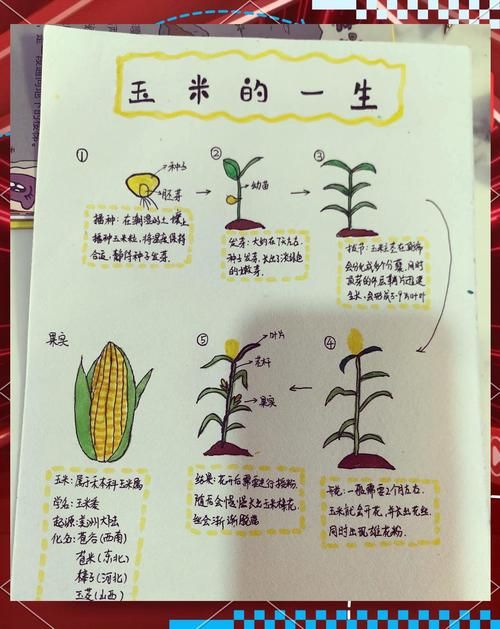 玉米的一生
①
种子
胚芽
播种:在潮湿的土壤上
播种玉米粒,将温度保持
合适,静待种子发芽.
②
幼苗
发芽:大约在7天左右
种子发芽,长出了淡绿色
的嫩芽.
③
拔节:玉米
会分化成多个分蘖,同时
生长,会形成5-9片叶叶
④
一般需要2个月左右.
玉米就会开花,并长出花丝,
同时出现雄花粉.
⑤
叶片
花轩
果实
结果:花开后需要进行授粉,
随后会慢慢长出玉米棒花
丝会渐渐脱落
果实
玉米:属于禾本科玉米属
学名:玉米黍
起源:美洲大陆
化名:苞谷(西南)
苞米(东北)
棒子(河北)
玉茭(山西)